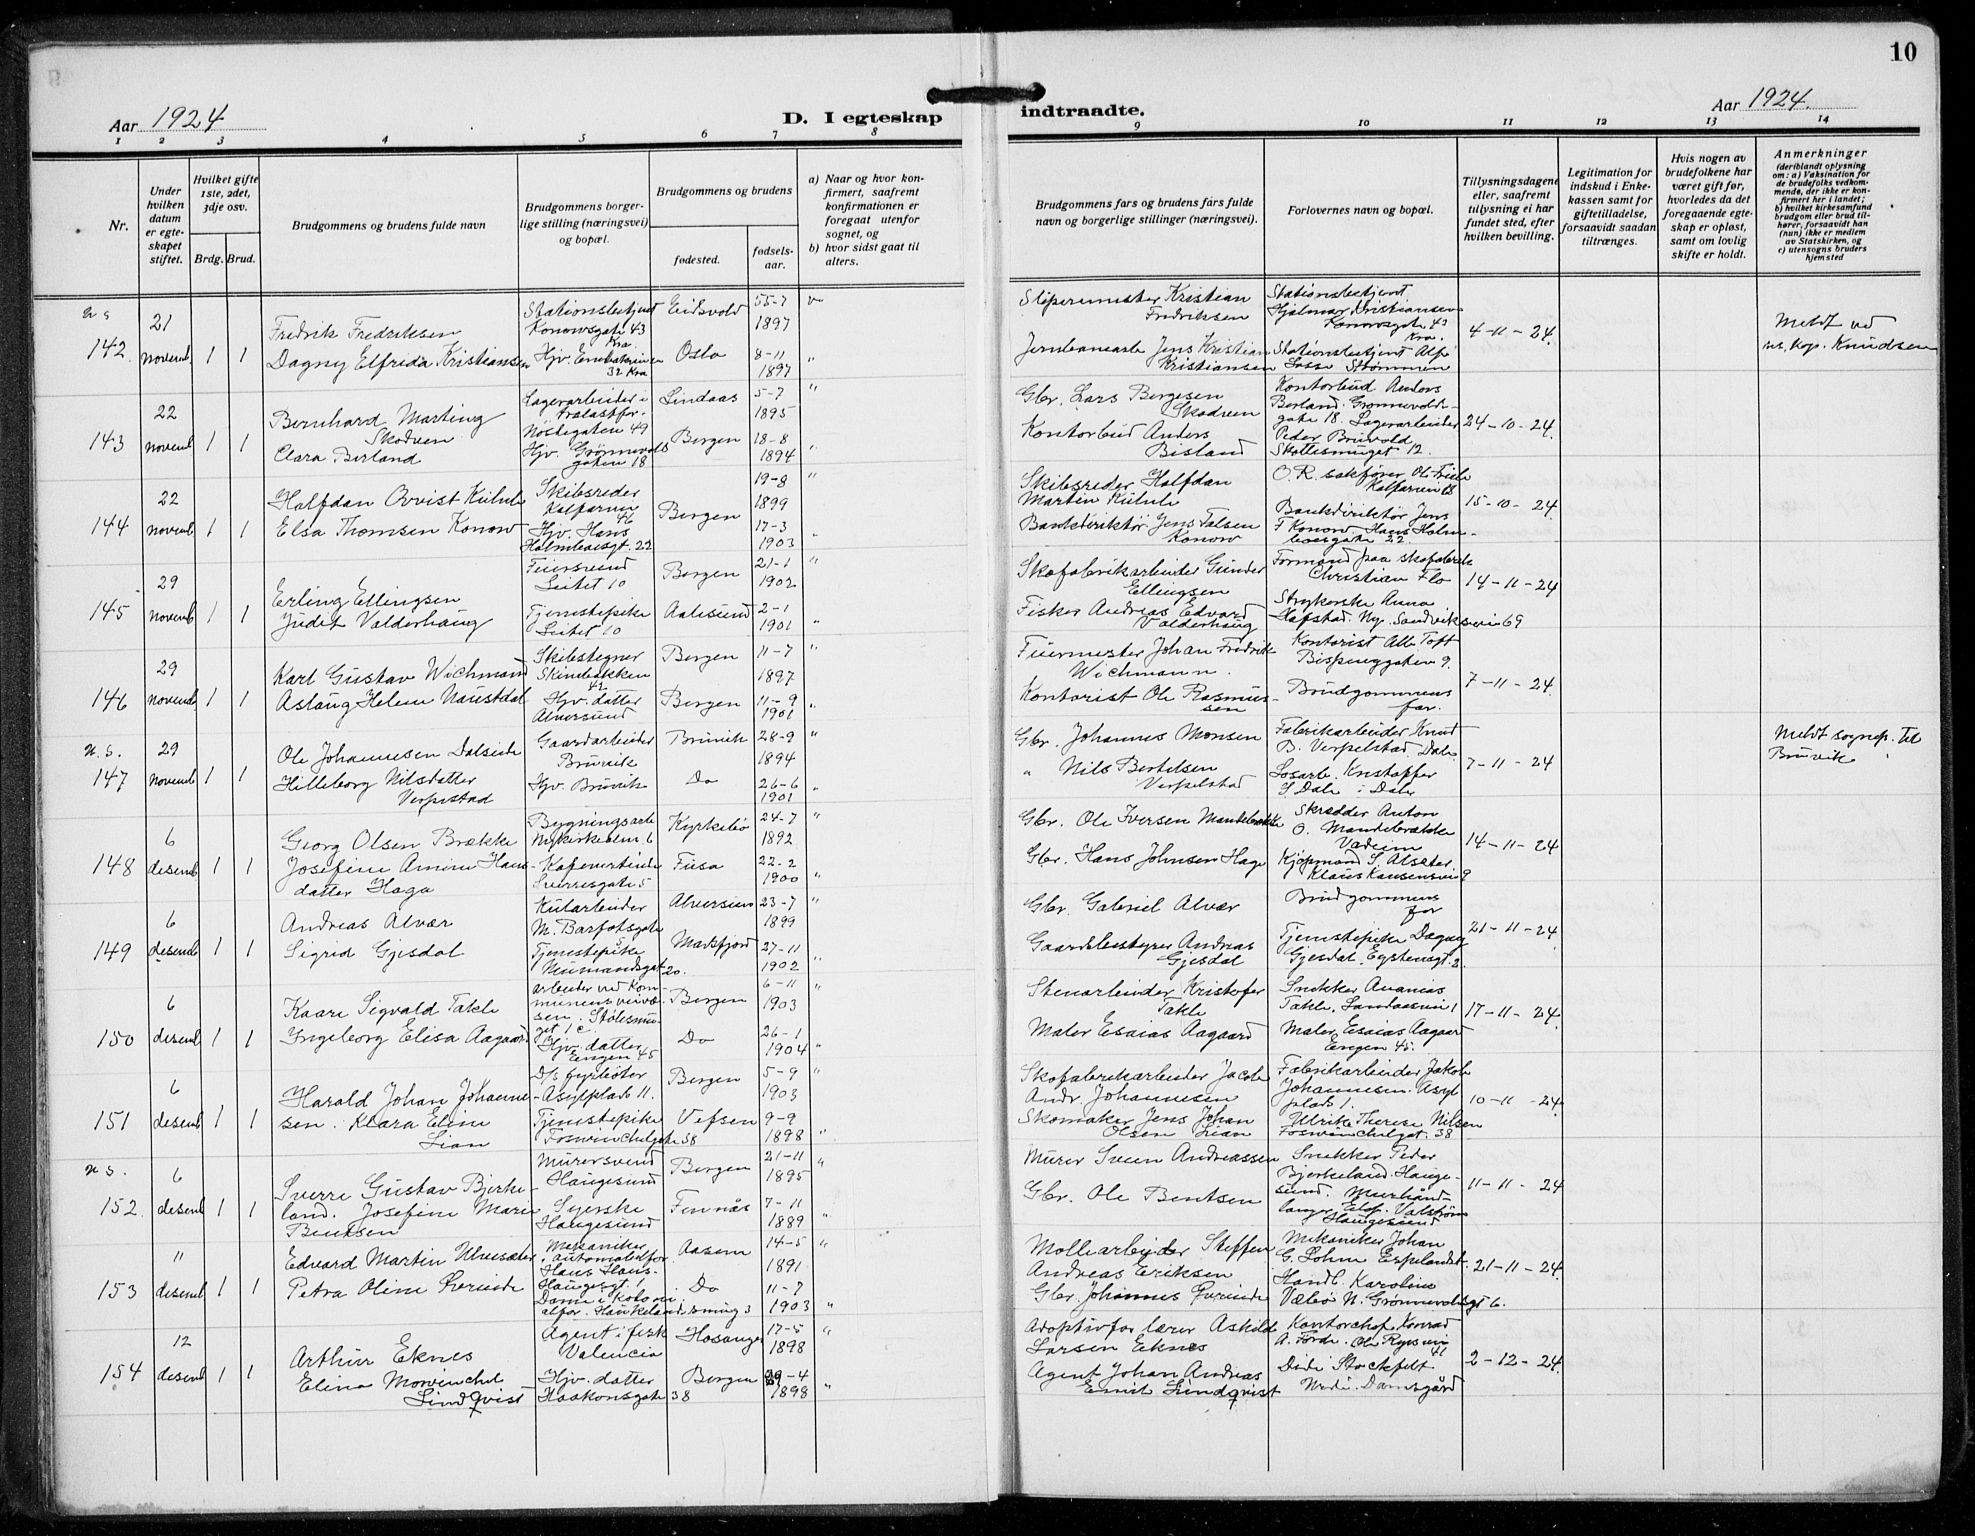 10
Aar 1924
D. I egteskap
indtraadte.
Aar 1924.
1 2 3 4 5 6 7 8 9 10 11 12 13 14
Nr.
Under hvilken datum er egteskapet stiftet.
Hvilket gifte 1ste, 2det, 3dje osv.
Brdg. Brud.
Brudgommens og brudens fulde navn
Brudgommens borgerlige stilling (næringsvei) og bopæl.
Brudgommens og brudens
fødested.
fødselsaar.
a) Naar og hvor konfirmert, saafremt konfirmationen er foregaat utenfor sognet, og
b) hvor sidst gaat til alters.
Brudgommens fars og brudens fars fulde navn og borgerlige stillinger (næringsvei).
Forlovernes navn og bopæl.
Tillysningsdagene eller, saafremt tillysning ei har fundet sted, efter hvilken bevilling.
Legitimation for indskud i Enkekassen samt for giftetilladelse, forsaavidt saadan tiltrænges.
Hvis nogen av brudefolkene har været gift før, hvorledes da det foregaaende egteskap er opløst, samt om lovlig skifte er holdt.
Anmerkninger
(deriblandt oplysning om: a) Vaksination for de brudefolks vedkommende, der ikke er konfirmert her i landet; b) hvilket kirkesamfund brudgom eller brud tilhører, forsaavidt han (hun) ikke er medlem av Statskirken, og c) utensogns bruders hjemsted
142. 21 novemb 1 1
Fredrik Fredriksen
Dagny Elfrida Kristiansen
Stationsbetjent
Konowsgate 43
Kra
Hjv.
32 Kra
Eidsvold
Oslo
1897
8-11
1897
Sliperimester Kristian
Fredriksen
Jernbanearb Jens Kristian
Kristiansen
Stationsbetjent
Hjalmar Kristiansen
Konowsgate 43
Kra.
Stationsbetjent Alf
Lasse Strømmen
4-11-24.
Meldt ved
res. kap. Knudsen
143 22 novemb 1 1
Bernhard Marting
Skodven
Clara Berland
Lagerarbeider i
Nöstegaten 49
Hjv. Grönnevolds
gaten 18
Lindaas
Bergen
5-7
1895
18-8
1894
Gbr. Lars Bergesen
Skodven
Kontorbud Anders
Bisland
Kontorbud Anders
Berland. Grønnevolds-
gate 18. Lagerarbeider
Peder Bruvold
Skottesmuget 12.
24-10-24.
144 22 novemb 1 1
Halfdan Qvvist Kuhnle
Elsa Thomsen Konow
Skibsreder
Kalfarvei
46
Hjv. Hans
Holmboesgt. 22
Bergen
19-8
1899
17-3
1903
Skibsreder Halfdan
Martin Kuhnle
Bankdirektör Jens Falsen
Konow
O.R. sakfører Ole Friele
Kalfarveien 68
Bankdirektör Jens
F Konow Hans Holm-
boesgate 22.
15-10-24.
145 29 novemb 1 1
Erling Ellingsen
Judit Valderhaug
Feiersvend
Leitet 10
Tjenestepike
Leitet 10
Bergen
Aalesund
21-1
1902
2-1
1901
Skofabrikarbeider Gunder
Ellingsen
Fisker Andreas Edvard
Valderhaug
Formand paa skofabrik
Christian Flo
Strykerske Anna
Hafstad. Ny. Sandviksvei 69
14-11-24
146 29 novemb 1 1
Karl Gustav Wichmand
Aslaug Helene Naustdal
Skibstegner
Skivebakken
42
Hjv. datter
Alversund
Bergen
Bergen
11-7
1897
11-9
1901
Feiermester Johan Fredrik
Wichmann.
Kontorist Ole Rasmus-
sen
Kontorist Alb Toft
Bispenggaten 9.
Brudgommens
far.
7-11-24.
147 29 novemb 1 1
Ole Johannesen Dalseide
Hilleborg Nilsdatter
Verpelstad
Gaardarbeider
Bruvik
Hjv. Bruvik
Bruvik
Do
28-9
1894
26-6
1901
Gbr. Johannes Monsen
" Nils Bertelsen
Verpelstad
Fabrikarbeider Knud
B. Verpelstad Dale
Losarb. Kristoffer
S Dale i Dale
7-11-24
Meldt sognep. til
Bruvik
148 6 desemb 1 1
Georg Olsen Brække
Josefine Amine Hans-
datter Haga
Bygningsarb
Nykirkealm. 6
Kafevertinde
Sverresgate 5
Kyrkebø
Fusa
24-7
1892
22-2
1900
Gbr. Ole Iversen Mandebrække
Gbr. Hans Johnsen Hage
Skrædder Anton
O. Mandebrække
Vadeim
Kjøpmand S. Alsaker
Klaus Hansensvei 9
14-11-24
149 6 desemb 1 1
Andreas Alvær
Sigrid Gjesdal
Kularbeider
M. Barfotsgate
Tjenestepike
Neumandsgat 20.
Alversund
Masfjord
23-7
1899
27-11
1902
Gbr. Gabriel Alvær
Gaardsbestyrer Andreas
Gjesdal
Brudgommens
far
Tjenestepike Dagny
Gjesdal. Eystensgt. 3
21-11-24
150 6 desemb 1 1
Kaare Sigvald Takle
Ingeborg Elisa Aagaard
arbeider ved Kom-
munens veivæ-
sen. Stølesmu-
get 1 c.
Hjv. datter
Engen 45
Bergen
Do
6-11
1903
26-1
1904
Stenarbeider Kristofer
Takle
Maler Esaias Aagaard
Snekker Ananias
Takle. Landaasvei 1
Maler Esaias Aagaard
Engen 45.
17-11-24.
151 6 desemb 1 1
Harald Johan Johanne-
sen. Klara Eline
Lian
D/s fyrbøter
Asylplads 11.
Tjenestepike
Foswinchelgate 38
Bergen
Vefsen
5-9
1903
9-9
1898
Skofabrikarbeider Jacob
Andr. Johannesen
Skomaker Jens Johan
Olsen Lian
Fabrikarbeider Jakob
Johannesen. Asyl
plads 1.
Ulrike Therese Nilsen
Foswinchelgat. 38
10-11-24
152. 6 desemb 1 1
Sverre Gustav Bjerke-
land. Josefine Marie
Bentsen
Murersvend
Haugesund
Syerske
Haugesund
Bergen
Finnås
21-11
1895
7-11
1889
Murer Sveen Andreassen
Gbr. Ole Bentsen
Snekker Peder
Bjerkeland. Hauge-
sund. Murhånd-
langer Valstrøm
Haugesund
11-11-24
153 " desemb 1 1
Edvard Martin Ulvesæter
Petra Oline Kverinde
Mekaniker
i automobilfor.
Hans Haus-
Haugesgt. 1
Dame i Koloni-
alfor. Haukelandsmug 3
Aasene
Do
14-5
1891
11-7
1903
Møllearbeider Steffen
Andreas Eriksen
Gbr. Johannes Kverinde
Mekaniker Johan
G. Sohm Espelandet
Handl. Karoline
Vabø N. Grønnevoldsgt 6.
21-11-24.
154 12 desemb 1 1
Arthur Eknes
Elina Morvinchel
Lindqvist
Agent i fisk
Valencia
Hjv. datter
Haakonsgate 38
Hosanger
Bergen
17-5
1898
29-4
1898
Adoptivfar lærer Askild
Larsen Eknes
Agent Johan Andreas
Emil Lindqvist
Kontorchef Konrad
A. Förde. Ole Rysvei
41
Didi Stockfelt
Nedr. Damsgård
2-12-24.